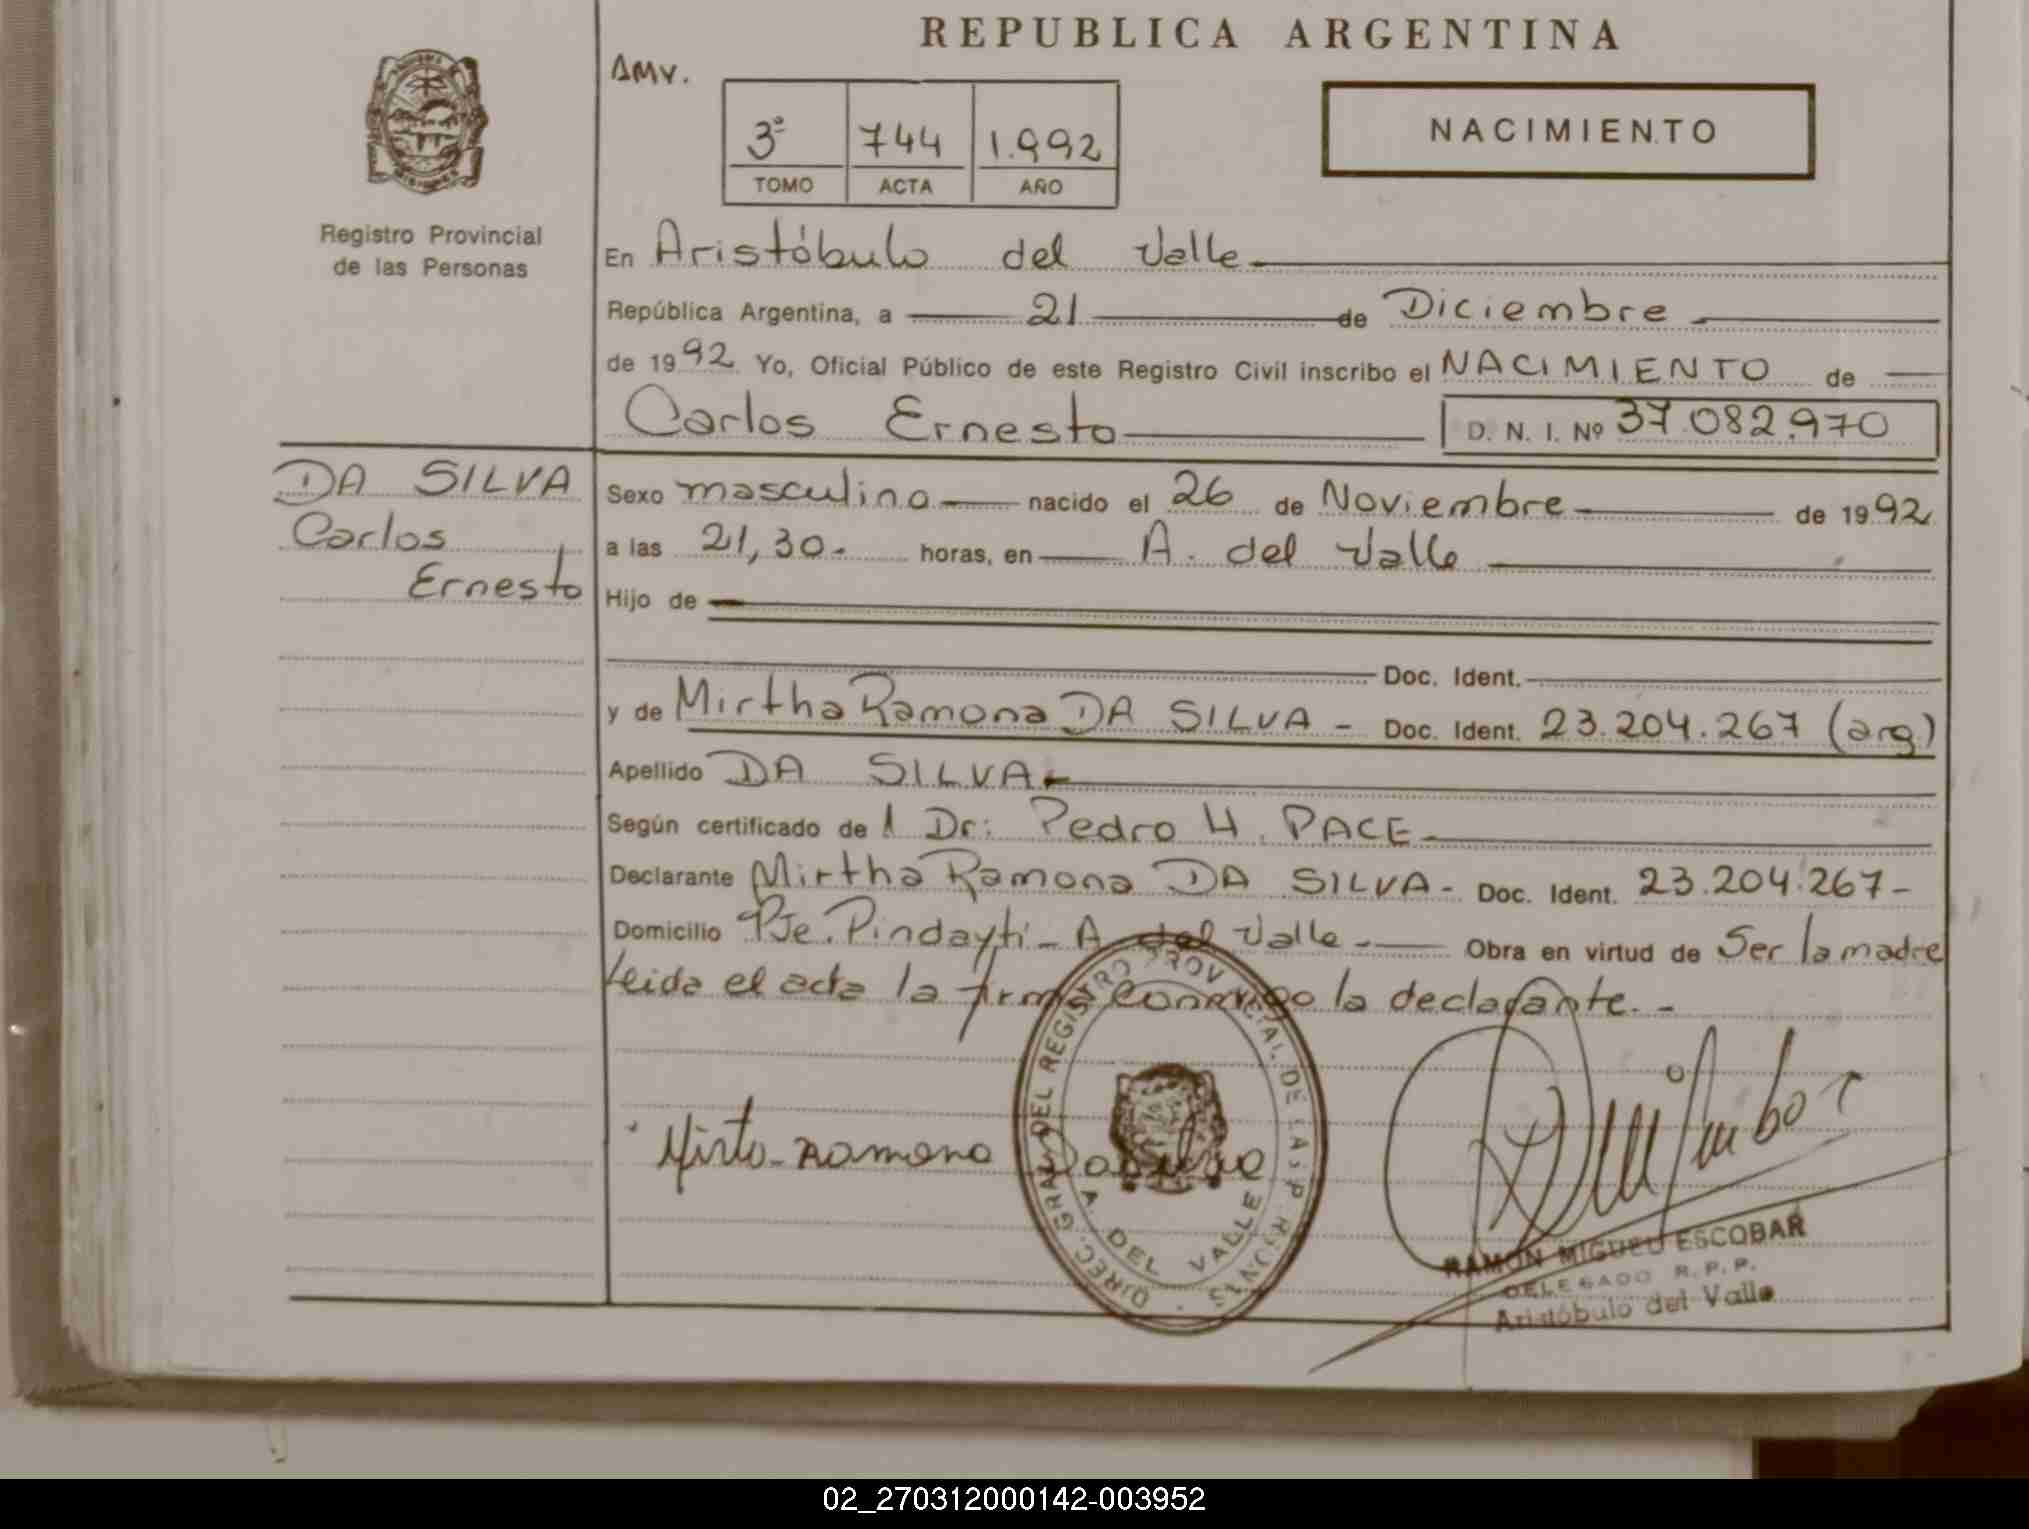 REPUBLICA ARGENTINA
AMV.
3º 744 1.992
TOMO ACTA AÑO
NACIMIENTO
Registro Provincial
de las Personas
En Aristóbulo del Valle
República Argentina, a 21 de Diciembre
de 1992 Yo, Oficial Público de este Registro Civil inscribo el NACIMIENTO de
Carlos Ernesto D. N. I. Nº 37.082.970
DA SILVA
Carlos
Ernesto
Sexo masculino nacido el 26 de Noviembre de 1992
a las 21,30- horas, en A. del Valle
Hijo de
Doc. Ident.
y de Mirtha Ramona DA SILVA - Doc. Ident. 23.204.267 (arg.)
Apellido DA SILVA
Según certificado de l Dr: Pedro H. PACE
Declarante Mirtha Ramona DA SILVA - Doc. Ident. 23.204.267-
Domicilio PJe. Pindaytí - A. del Valle - Obra en virtud de Ser la madre
leida el acta la firma conmigo la declarante. -
Mirta Ramona Dasilva
DIREC. GRAL. DEL REGISTRO PROVINCIAL DE LAS PERSONAS
A. DEL VALLE
RAMON MIGUEL ESCOBAR
DELEGADO R. P. P.
Aristóbulo del Valle
02_270312000142-003952